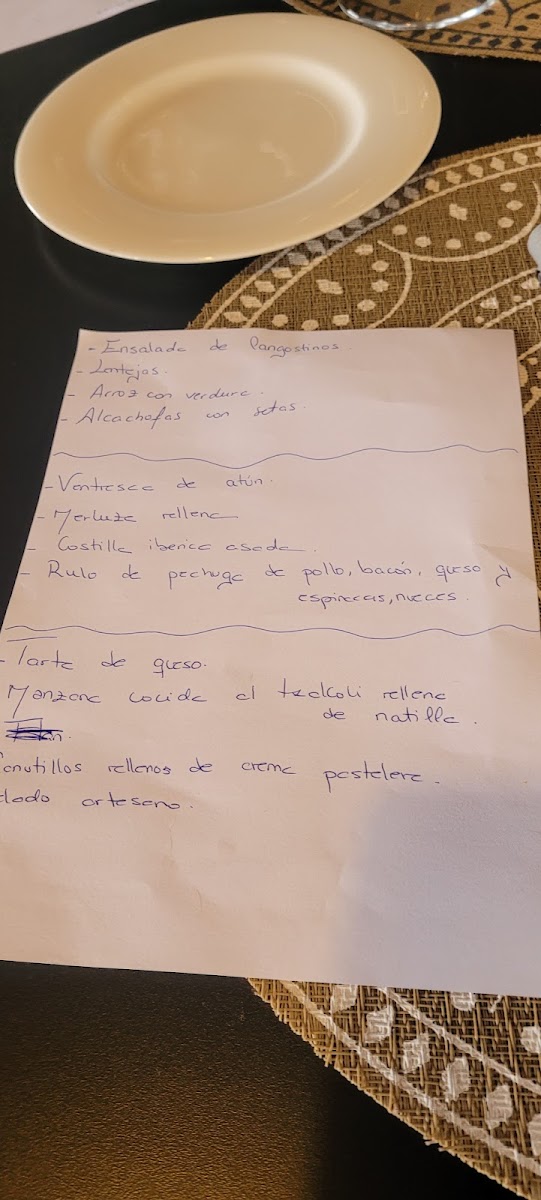 - Ensalada de langostinos.
- Lentejas.
- Arroz con verdura.
- Alcachofas con setas.
- Ventresca de atún.
- Merluza rellena
- Costilla iberica asada.
- Rulo de pechuga de pollo, bacón, queso y
espinacas, nueces.
- Tarta de queso.
Manzana cocida al txakoli rellena
de natilla.
anutillos rellenos de crema pastelera.
elado artesano.